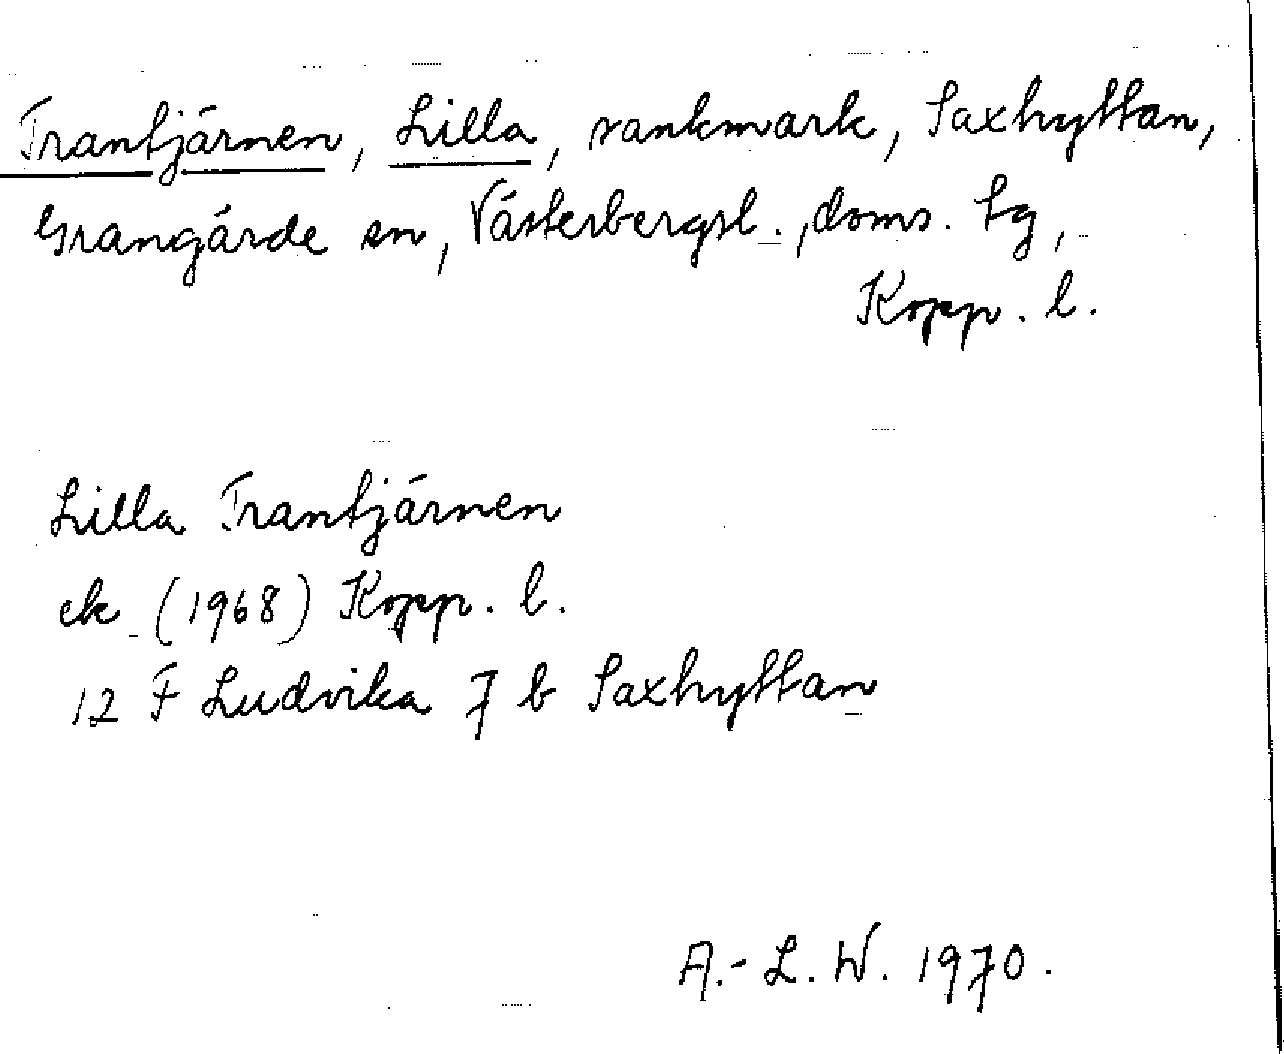 Trantjärnen, Lilla, sankmark, Saxhyttan,
Grangärde sn, Västerbergsl., doms. tg,
Kopp. l.
Lilla Trantjärnen
ek (1968) Kopp. l.
12 F Ludvika 7 b Saxhyttan
A.-L. W. 1970.